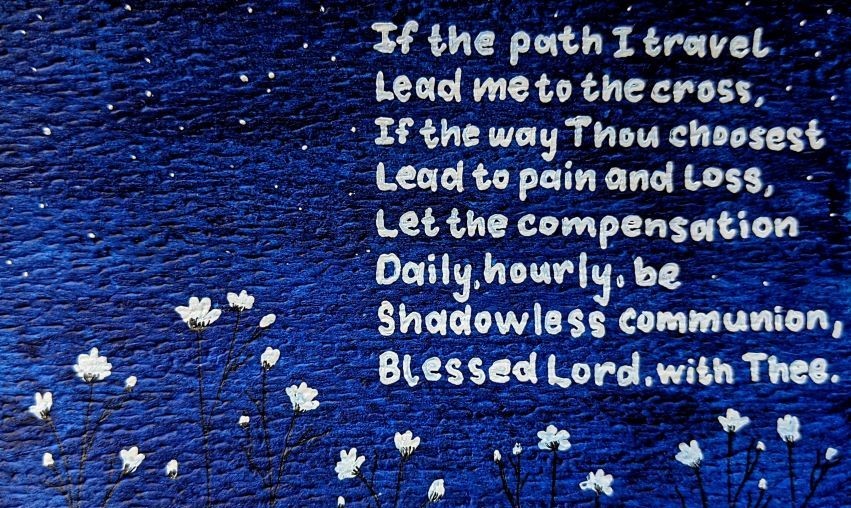 If the path I travel
Lead me to the cross,
If the way Thou choosest
Lead to pain and Loss,
Let the compensation
Daily, hourly, be
Shadowless communion,
Blessed Lord, with Thee.